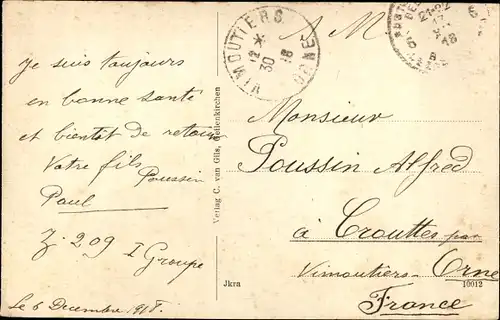 Je suis toujours
en bonne santé
et bientôt de retour
Votre fils Poussin
Paul
Z. 209 I Groupe
le 6 Decembre 918.
Verlag C. van Gils, Geilenkirchen
Jkra
VIMOUTIERS
12 * 18
30
ORNE
21-22
17
18
A M
Monsieur
Poussin Alfred
à Crouttes par
Vimoutiers Orne
10012
France